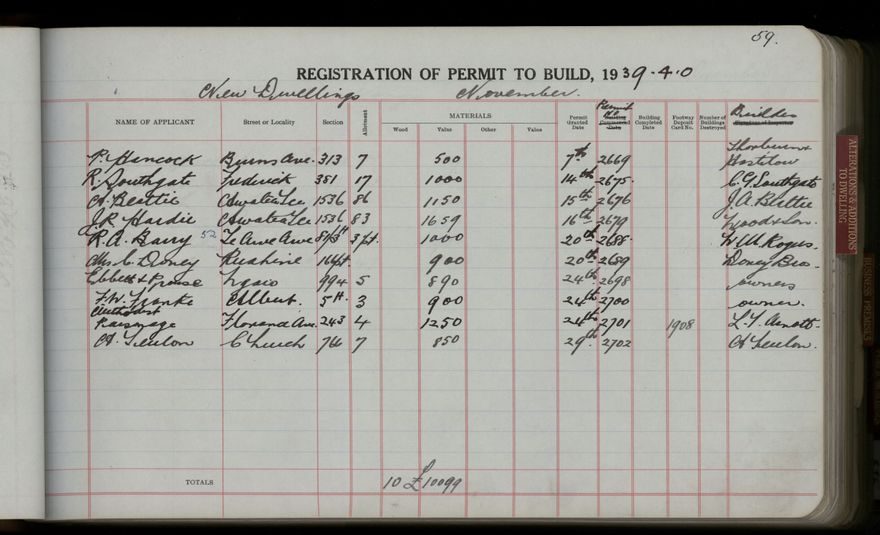 59.
REGISTRATION OF PERMIT TO BUILD, 1939-4.0
New Dwellings November.
NAME OF APPLICANT Street or Locality Section Allotment MATERIALS Wood Value Other Value Permit Granted Date Permit No Building Commenced Date Building Completed Date Footway Deposit Card No. Number of Buildings Destroyed Builder
P. Hancock Burns Ave. 313 7 500 7th 2669 Thorburn & Hastilow
R. Southgate Frederick 351 17 1000 14th 2675. C. G. Southgate
A. Beattie Awatea Tce 1536 86 1150 15th 2676 J A Beattie
J. R. Hardie Awatea Tce 1536 83 1659 16th 2679 Wood & Son.
R. A. Barry 52 Te Awe Awe 3 pt. 1000 20th 2688. W. M. Rogers.
Mrs C. Doney Ruahine pt 900 20th 2689 Doney Bros.
Ebbett & Prouse Ngaio 994 5 890 24th 2698 owners
F. W. Franke Albert. 5 3 900 24th 2700 owner.
Raismage 243 4 1250 24th 2701 1908 L. F. Arnott.
A. Seulon Church 766 7 850 29th 2702 A Seulon.
TOTALS 10 £10099
ALTERATIONS & ADDITIONS TO DWELLING
BUSINESS PREMISES